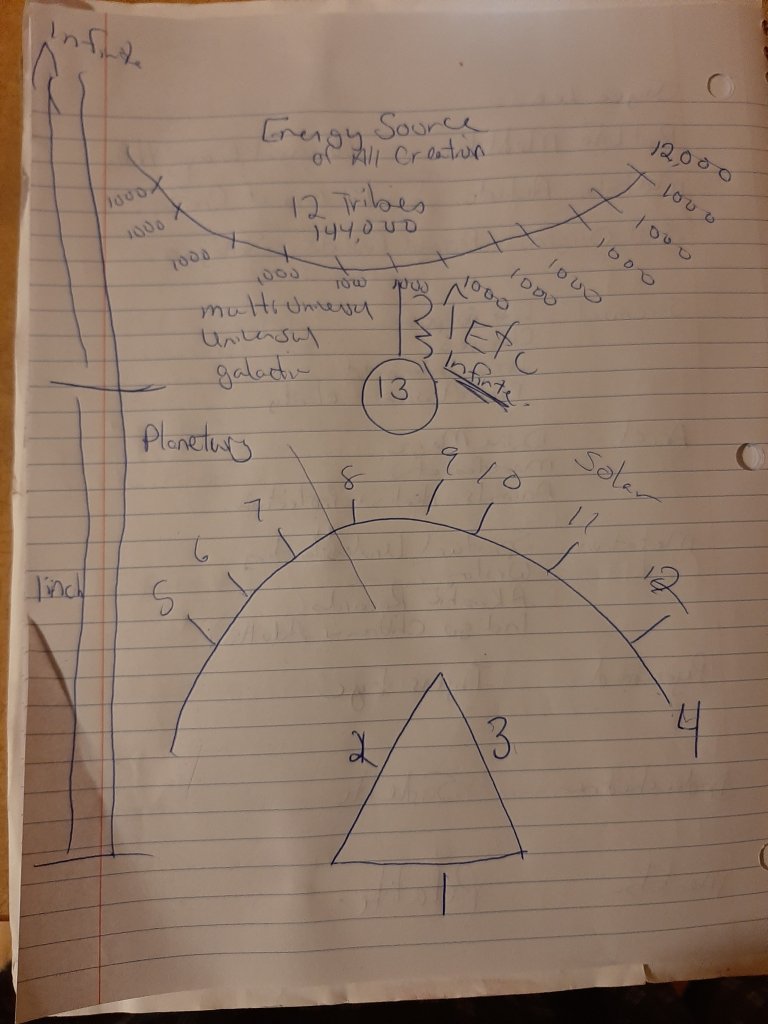 Infinite
Energy Source
of All Creation
12,000
12 Tribes
144,000
1000
1000
1000
1000
1000
1000
1000
1000
1000
1000
1000
1000
multi universal
Universal
galactic
Etc
Infinite
13
Planetary
Solar
5
6
7
8
9
10
11
12
4
1inch
2
3
1